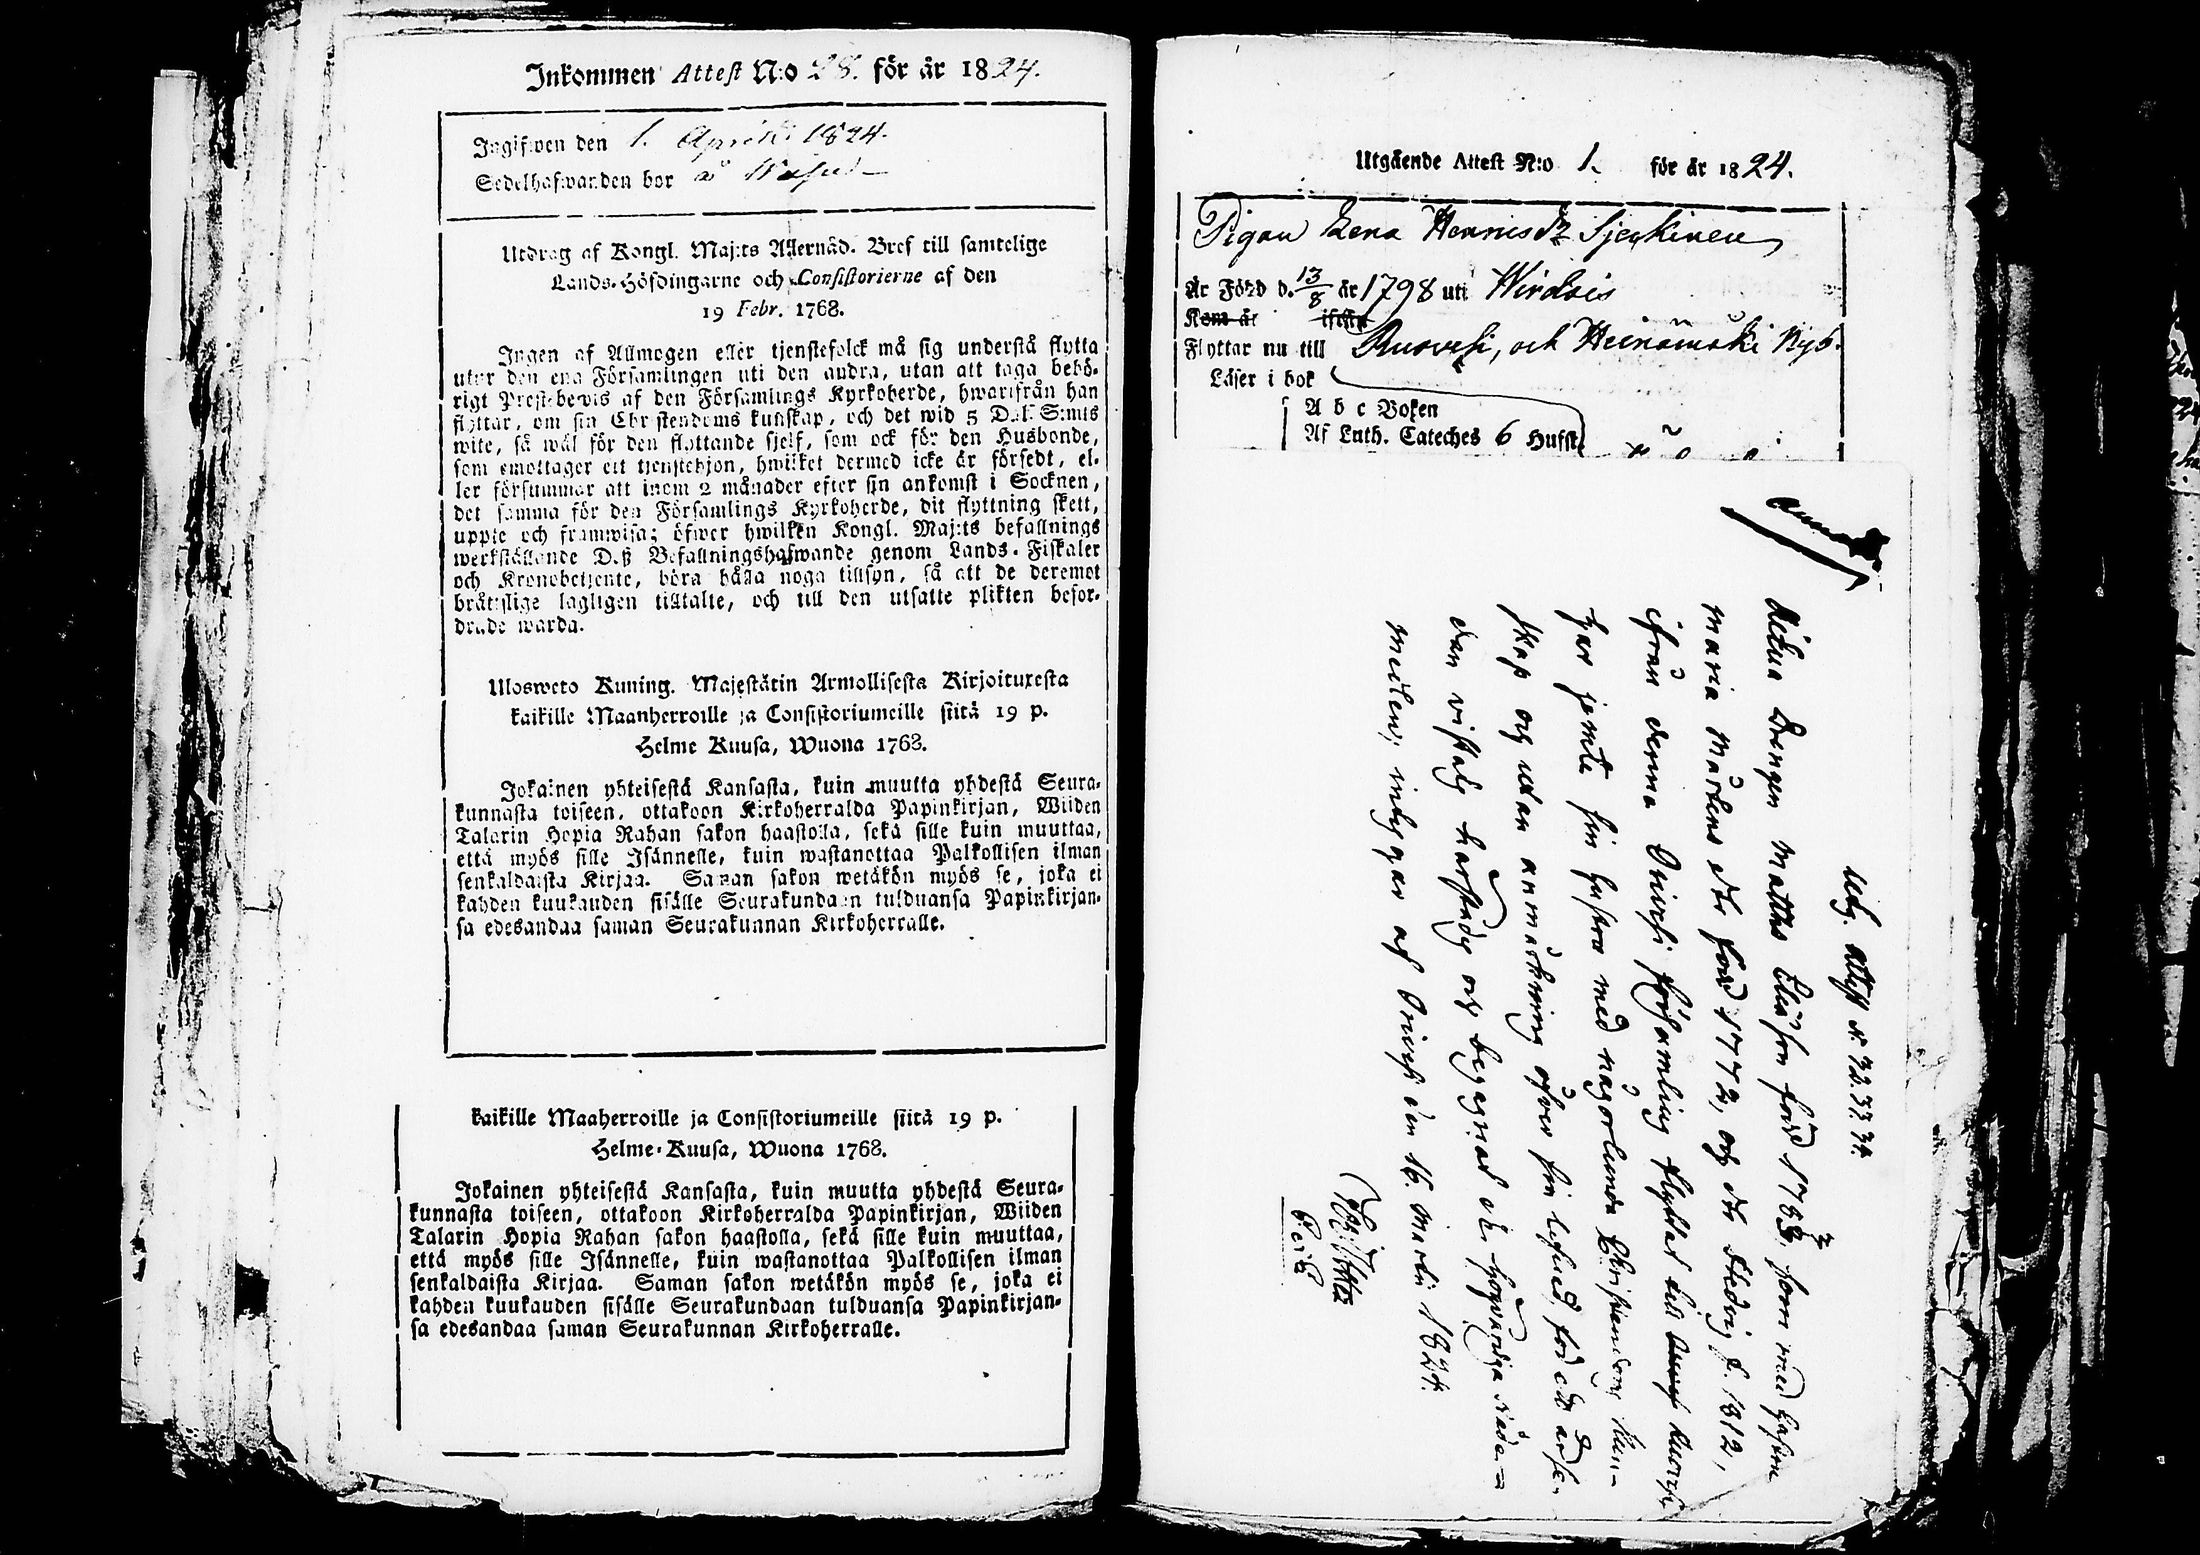 Inkommen Attest N:o 28. för år 1824.
Ingifwen den 1. Aprill 1824.
Sedelhafwanden bor å
Utdrag af Kongl. Maj:ts Allernåd. Bref till samtelige
Lands-Höfdingarne och Consistorierne af den
19 Febr. 1768.
Ingen af Allmogen eller tjenstefolck må sig understå flytta
utur den ena Församlingen uti den andra, utan att taga behö-
rigt Prestebewis af den Församlings Kyrkoherde, hwarifrån han
flyttar, om sin Christendoms kunskap, och det wid 5 Dal. S:mts
wite, så wäl för den flyttande sjelf, som ock för den Husbonde,
som emottager ett tjenstehjon, hwilket dermed icke är försedt, el-
ler försummar att inom 2 månader efter sin ankomst i Socknen,
det samma för den Församlings Kyrkoherde, dit flyttning skett,
uppte och framwisa; öfwer hwilken Kongl. Maj:ts befallnings
werkställande D.ß Befallningshafwande genom Lands-Fiskaler
och Kronobetjente, böra hålla noga tillsyn, så att de deremot
bråttslige lagligen tilltalte, och till den utsatte plikten befor-
drade warda.
Ulosweto Kuning. Majestätin Armollisesta Kirjoituxesta
kaikille Maanherroille ja Consistoriumeille siitä 19 p.
Helme Kuusa, Wuona 1768.
Jokainen yhteisestä Kansasta, kuin muutta yhdestä Seura-
kunnasta toiseen, ottakoon Kirkoherralda Papinkirjan, Wiiden
Talarin Hopia Rahan sakon haastolla, sekä sille kuin muuttaa,
että myös sille Isännelle, kuin wastanottaa Palkollisen ilman
senkaldaista Kirjaa. Saman sakon wetäkön myös se, joka ei
kahden kuukauden sisälle Seurakundaan tulduansa Papinkirjan-
sa edesandaa saman Seurakunnan Kirkoherralle.
kaikille Maaherroille ja Consistoriumeille siitä 19 p.
Helme-Kuusa, Wuona 1768.
Jokainen yhteisestä Kansasta, kuin muutta yhdestä Seura-
kunnasta toiseen, ottakoon Kirkoherralda Papinkirjan, Wiiden
Talarin Hopia Rahan sakon haastolla, sekä sille kuin muuttaa,
että myös sille Isännelle, kuin wastanottaa Palkollisen ilman
senkaldaista Kirjaa. Saman sakon wetäkön myös se, joka ei
kahden kuukauden sisälle Seurakundaan tulduansa Papinkirjan-
sa edesandaa saman Seurakunnan Kirkoherralle.
Utgående Attest N:o 1. för år 1824.
Pigan Lena Hennisdr
Är Född d. 13/8 år 1798 uti Wirdois
Kom år ifrån
Flyttar nu till Ruovesi, och Heinämäki Nyb.
Läser i bok
A b c Boken
Af Luth. Cateches 6 Hufst.
Attest N. 32. 33. 34.
Drengen Matths Eliäson föd 1783, som med hustru
Maria Mårtens dr föd 1772, och dr Hedvig f. 1812,
ifrån denna Orivesi församling flyttat till Ruovesi,
har jemte sin hustru med någorlunda Christendoms kun-
skap och utan anmärkning öfver sin lefnad, för
begagnat de högvärdiga
medlen; intygar af Orivesi den 16. Martii 1824.